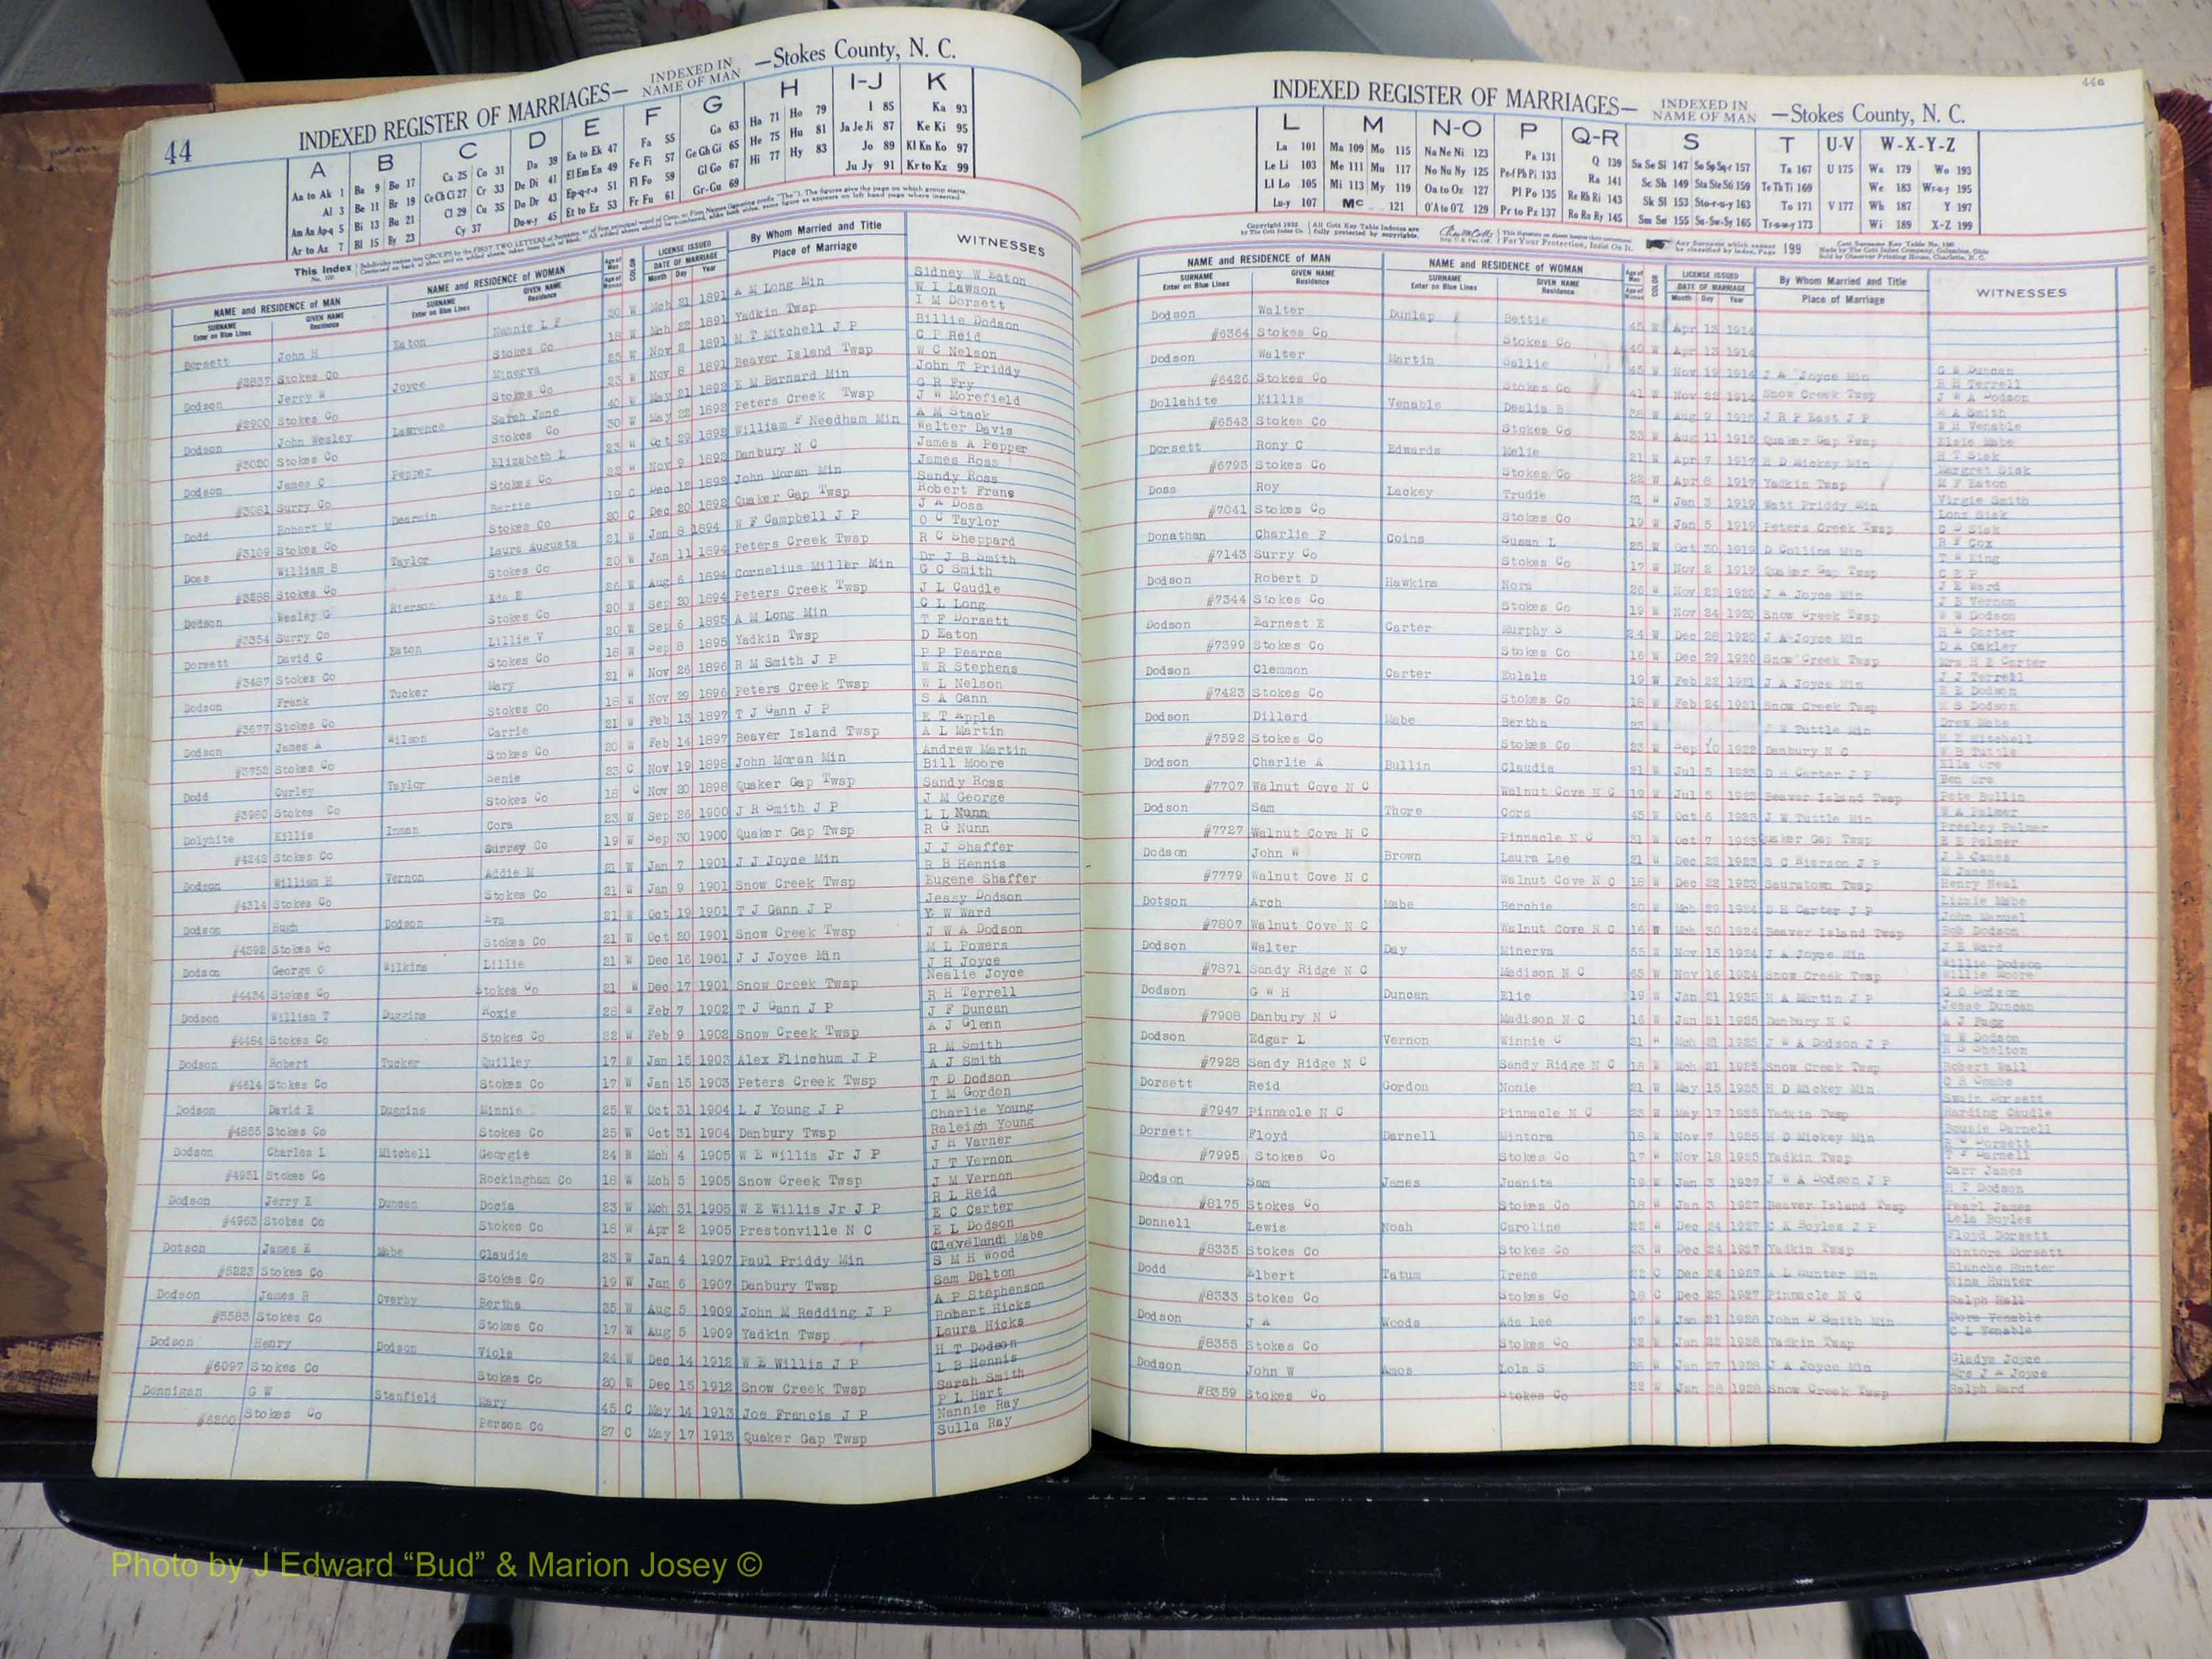 44
INDEXED REGISTER OF MARRIAGES— INDEXED IN NAME OF MAN —Stokes County, N. C.
A B C D E F G H I-J K
Aa to Ak 1 Ba 9 Bo 17 Ca 25 Co 31 Da 39 Ea to Ek 47 Fa 55 Ga 63 Ha 71 Ho 79 I 85 Ka 93
Al 3 Be 11 Br 19 Ce Ch Ci 27 Cr 33 De Di 41 El Em En 49 Fe Fi 57 Ge Gh Gi 65 He 75 Hu 81 Ja Je Ji 87 Ke Ki 95
Am An Ap-q 5 Bi 13 Bu 21 Cl 29 Cu 35 Do Dr 43 Ep-q-r-s 51 Fl Fo 59 Gl Go 67 Hi 77 Hy 83 Jo 89 Kl Kn Ko 97
Ar to Az 7 Bl 15 By 23 Cy 37 Du-w-y 45 Et to Ez 53 Fr Fu 61 Gr-Gu 69 Ju Jy 91 Kr to Kz 99
NAME and RESIDENCE OF MAN NAME and RESIDENCE OF WOMAN LICENSE ISSUED By Whom Married and Title WITNESSES
SURNAME Enter on Blue Lines GIVEN NAME Residence SURNAME Enter on Blue Lines GIVEN NAME Residence DATE OF MARRIAGE Month Day Year Place of Marriage
Dorsett John H Eaton Nannie L F 20 W Mch 21 1891 A M Long Min Sidney W Eaton
#2837 Stokes Co Stokes Co 18 W Mch 22 1891 Yadkin Twsp W I Lawson
I M Dorsett
Dodson Jerry W Joyce Minerva 25 W Nov 2 1891 M T Mitchell J P Billie Dodson
#2900 Stokes Co Stokes Co 23 W Nov 8 1891 Beaver Island Twsp C P Reid
W C Nelson
Dodson John Wesley Lawrence Sarah Jane 40 W May 21 1892 E M Barnard Min John T Priddy
#3020 Stokes Co Stokes Co 30 W May 22 1892 Peters Creek Twsp G R Fry
J W Morefield
Dodson James C Pepper Elizabeth L 23 W Oct 29 1892 William F Needham Min A M Stack
#3081 Surry Co Stokes Co 22 W Nov 9 1892 Danbury N C Walter Davis
James A Pepper
Dodd Robert M Dearmin Bertie 19 C Dec 12 1892 John Moran Min James Ross
#3109 Stokes Co Stokes Co 20 C Dec 20 1892 Quaker Gap Twsp Sandy Ross
Robert Frans
Doss William B Taylor Laura Augusta 21 W Jan 8 1894 W F Campbell J P J A Doss
#3288 Stokes Co Stokes Co 20 W Jan 11 1894 Peters Creek Twsp O C Taylor
R C Sheppard
Dodson Wesley G Rierson Ada E 26 W Aug 6 1894 Cornelius Miller Min Dr J B Smith
#3354 Surry Co Stokes Co 20 W Sep 20 1894 Peters Creek Twsp G C Smith
J L Caudle
Dorsett David C Eaton Lillie V 20 W Sep 6 1895 A M Long Min C L Long
#3487 Stokes Co Stokes Co 18 W Sep 8 1895 Yadkin Twsp T F Dorsett
D Eaton
Dodson Frank Tucker Mary 21 W Nov 26 1896 R M Smith J P P P Pearce
#3677 Stokes Co Stokes Co 18 W Nov 29 1896 Peters Creek Twsp W R Stephens
W L Nelson
Dodson James A Wilson Carrie 21 W Feb 13 1897 T J Gann J P S A Gann
#3752 Stokes Co Stokes Co 20 W Feb 14 1897 Beaver Island Twsp E T Apple
A L Martin
Dodd Curley Taylor Senie 23 C Nov 19 1898 John Moran Min Andrew Martin
#3980 Stokes Co Stokes Co 18 C Nov 20 1898 Quaker Gap Twsp Bill Moore
Sandy Ross
Dolyhite Killis Inman Cora 23 W Sep 26 1900 J R Smith J P J M George
#4242 Stokes Co Surrey Co 19 W Sep 30 1900 Quaker Gap Twsp L L Nunn
R G Nunn
Dodson William H Vernon Addie M 21 W Jan 7 1901 J J Joyce Min J J Shaffer
#4314 Stokes Co Stokes Co 21 W Jan 9 1901 Snow Creek Twsp R B Hennis
Eugene Shaffer
Dodson Hugh Dodson Eva 21 W Oct 19 1901 T J Gann J P Jessy Dodson
#4392 Stokes Co Stokes Co 21 W Oct 20 1901 Snow Creek Twsp W Ward
J W A Dodson
Dodson George O Wilkins Lillie 21 W Dec 16 1901 J J Joyce Min M L Powers
#4434 Stokes Co Stokes Co 21 W Dec 17 1901 Snow Creek Twsp J H Joyce
Nealie Joyce
Dodson William T Duggins Roxie 28 W Feb 7 1902 T J Gann J P R H Terrell
#4484 Stokes Co Stokes Co 22 W Feb 9 1902 Snow Creek Twsp J F Duncan
A J Glenn
Dodson Robert Tucker Quilley 17 W Jan 15 1903 Alex Flinchum J P R M Smith
#4614 Stokes Co Stokes Co 17 W Jan 15 1903 Peters Creek Twsp A J Smith
T D Dodson
Dodson David E Duggins Minnie 25 W Oct 31 1904 L J Young J P I M Gordon
#4855 Stokes Co Stokes Co 25 W Oct 31 1904 Danbury Twsp Charlie Young
Raleigh Young
Dodson Charles L Mitchell Georgie 24 W Mch 4 1905 W E Willis Jr J P J H Varner
#4951 Stokes Co Rockingham Co 18 W Mch 5 1905 Snow Creek Twsp J T Vernon
J M Vernon
Dodson Jerry E Duncan Docia 23 W Mch 31 1905 W E Willis Jr J P R L Reid
#4963 Stokes Co Stokes Co 18 W Apr 2 1905 Prestonville N C E C Carter
E L Dodson
Dotson James E Mabe Claudie 23 W Jan 4 1907 Paul Priddy Min Cleveland Mabe
#5223 Stokes Co Stokes Co 19 W Jan 6 1907 Danbury Twsp S M H Wood
Sam Dalton
Dodson James R Overby Bertha 35 W Aug 5 1909 John M Redding J P A P Stephenson
#5583 Stokes Co Stokes Co 17 W Aug 5 1909 Yadkin Twsp Robert Hicks
Laura Hicks
Dodson Henry Dodson Viola 24 W Dec 14 1912 W E Willis J P H T Dodson
#6097 Stokes Co Stokes Co 20 W Dec 15 1912 Snow Creek Twsp L B Hennis
Sarah Smith
Donnigan G W Stanfield Mary 45 C May 14 1913 Joe Francis J P P L Hart
#6200 Stokes Co Person Co 27 C May 17 1913 Quaker Gap Twsp Nannie Ray
Sulla Ray
44a
INDEXED REGISTER OF MARRIAGES— INDEXED IN NAME OF MAN —Stokes County, N. C.
L M N-O P Q-R S T U-V W-X-Y-Z
La 101 Ma 109 Mo 115 Na Ne Ni 123 Pa 131 Q 139 Sa Se Si 147 So Sp Sq-r 157 Ta 167 U 175 Wa 179 Wo 193
Le Li 103 Me 111 Mu 117 No Nu Ny 125 Pe-f Ph Pi 133 Ra 141 Sc Sh 149 Sta Ste Sti 159 Te Th Ti 169 We 183 Wr-u-y 195
Ll Lo 105 Mi 113 My 119 Oa to Oz 127 Pl Po 135 Re Rh Ri 143 Sk Sl 153 Sto-r-u-y 163 To 171 V 177 Wh 187 Y 197
Lu-y 107 Mc 121 O'A to O'Z 129 Pr to Pz 137 Ro Ru Ry 145 Sm Sn 155 Su-Sw-Sy 165 Tr-u-w-y 173 Wi 189 X-Z 199
NAME and RESIDENCE OF MAN NAME and RESIDENCE OF WOMAN LICENSE ISSUED By Whom Married and Title WITNESSES
SURNAME Enter on Blue Lines GIVEN NAME Residence SURNAME Enter on Blue Lines GIVEN NAME Residence DATE OF MARRIAGE Month Day Year Place of Marriage
Dodson Walter Dunlap Bettie 45 W Apr 13 1914
#6364 Stokes Co Stokes Co 40 W Apr 13 1914
Dodson Walter Martin Sallie 45 W Nov 19 1914 J A Joyce Min G W Duncan
#6426 Stokes Co Stokes Co 41 W Nov 22 1914 Snow Creek Twsp R H Terrell
J W A Dodson
Dollahite Killis Venable Dealia B 38 W Aug 9 1915 J R F East J P M A Smith
#6543 Stokes Co Stokes Co 33 W Aug 11 1915 Quaker Gap Twsp W H Venable
Elsie Mabe
Dorsett Rony C Edwards Melie 21 W Apr 7 1917 H D Mickey Min H T Sisk
#6793 Stokes Co Stokes Co 22 W Apr 8 1917 Yadkin Twsp Margret Sisk
M F Eaton
Doss Roy Lackey Trudie 21 W Jan 3 1919 Watt Priddy Min Virgie Smith
#7041 Stokes Co Stokes Co 19 W Jan 5 1919 Peters Creek Twsp Lonz Sisk
C D Sisk
Donathan Charlie F Coins Susan L 25 W Oct 30 1919 D Collins Min R F Cox
#7143 Surry Co Stokes Co 17 W Nov 2 1919 Quaker Gap Twsp T W King
Dodson Robert D Hawkins Nora 26 W Nov 22 1920 J A Joyce Min J E Ward
#7344 Stokes Co Stokes Co 19 W Nov 24 1920 Snow Creek Twsp J B Vernon
W W Dodson
Dodson Earnest E Carter Murphy S 24 W Dec 28 1920 J A Joyce Min H E Carter
#7399 Stokes Co Stokes Co 16 W Dec 29 1920 Snow Creek Twsp D A Oakley
Mrs H E Carter
Dodson Clemmon Carter Eulala 19 W Feb 22 1921 J A Joyce Min J J Terrell
#7423 Stokes Co Stokes Co 18 W Feb 24 1921 Snow Creek Twsp E E Dodson
M S Dodson
Dodson Dillard Mabe Bertha 23 W J W Tuttle Min Drew Mabe
#7592 Stokes Co Stokes Co 23 W Sep 10 1922 Danbury N C H E Mitchell
W B Tuttle
Dodson Charlie A Bullin Claudia 21 W Jul 5 1923 D H Carter J P Ella Ore
#7707 Walnut Cove N C Walnut Cove N C 19 W Jul 5 1923 Beaver Island Twsp Ben Ore
Pete Bullin
Dodson Sam Thore Cora 45 W Oct 6 1923 J W Tuttle Min W A Palmer
#7727 Walnut Cove N C Pinnacle N C 31 W Oct 7 1923 Quaker Gap Twsp Presley Palmer
E E Palmer
Dodson John W Brown Laura Lee 21 W Dec 22 1923 S C Rierson J P J E James
#7779 Walnut Cove N C Walnut Cove N C 18 W Dec 22 1923 Sauratown Twsp M James
Henry Neal
Dotson Arch Mabe Berchie 20 W Mch 29 1924 D H Carter J P Linnie Mabe
#7807 Walnut Cove N C Walnut Cove N C 16 W Mch 30 1924 Beaver Island Twsp John Manuel
Bob Dodson
Dodson Walter Day Minerva 55 W Nov 15 1924 J A Joyce Min J E Ward
#7871 Sandy Ridge N C Madison N C 65 W Nov 16 1924 Snow Creek Twsp Willie Dodson
Willie Moore
Dodson G W H Duncan Elie 19 W Jan 21 1925 N A Martin J P G E Dodson
#7908 Danbury N C Madison N C 16 W Jan 31 1925 Danbury N C Jesse Duncan
A J Fagg
Dodson Edgar L Vernon Winnie C 21 W Mch 21 1925 J W A Dodson J P W W Dodson
#7928 Sandy Ridge N C Sandy Ridge N C 18 W Mch 21 1925 Snow Creek Twsp H S Shelton
Robert Wall
Dorsett Reid Gordon Nonie 21 W May 15 1925 H D Mickey Min C R Combs
#7947 Pinnacle N C Pinnacle N C 23 W May 17 1925 Yadkin Twsp Swain Dorsett
Harding Caudle
Dorsett Floyd Darnell Mintora 18 W Nov 7 1925 H D Mickey Min Bousie Darnell
#7995 Stokes Co Stokes Co 17 W Nov 18 1925 Yadkin Twsp R W Dorsett
T F Darnell
Dodson Sam James Juanita 19 W Jan 3 1927 J W A Dodson J P Carr James
#8175 Stokes Co Stokes Co 18 W Jan 3 1927 Beaver Island Twsp H T Dodson
Pearl James
Donnell Lewis Noah Caroline 22 W Dec 24 1927 C K Boyles J P Lela Boyles
#8335 Stokes Co Stokes Co 23 W Dec 24 1927 Yadkin Twsp Floyd Dorsett
Mintora Dorsett
Dodd Albert Tatum Irene 22 C Dec 24 1927 A L Hunter Min Blanche Hunter
#8333 Stokes Co Stokes Co 18 C Dec 25 1927 Pinnacle N C Nina Hunter
Ralph Hall
Dodson J A Woods Ada Lee 47 W Jan 21 1928 John D Smith Min Dora Venable
#8355 Stokes Co Stokes Co 32 W Jan 22 1928 Yadkin Twsp C L Venable
Dodson John W Amos Lola S 26 W Jan 27 1928 J A Joyce Min Gladys Joyce
#8359 Stokes Co Stokes Co 22 W Jan 28 1928 Snow Creek Twsp Mrs J A Joyce
Ralph Ward
Photo by J Edward “Bud” & Marion Josey ©